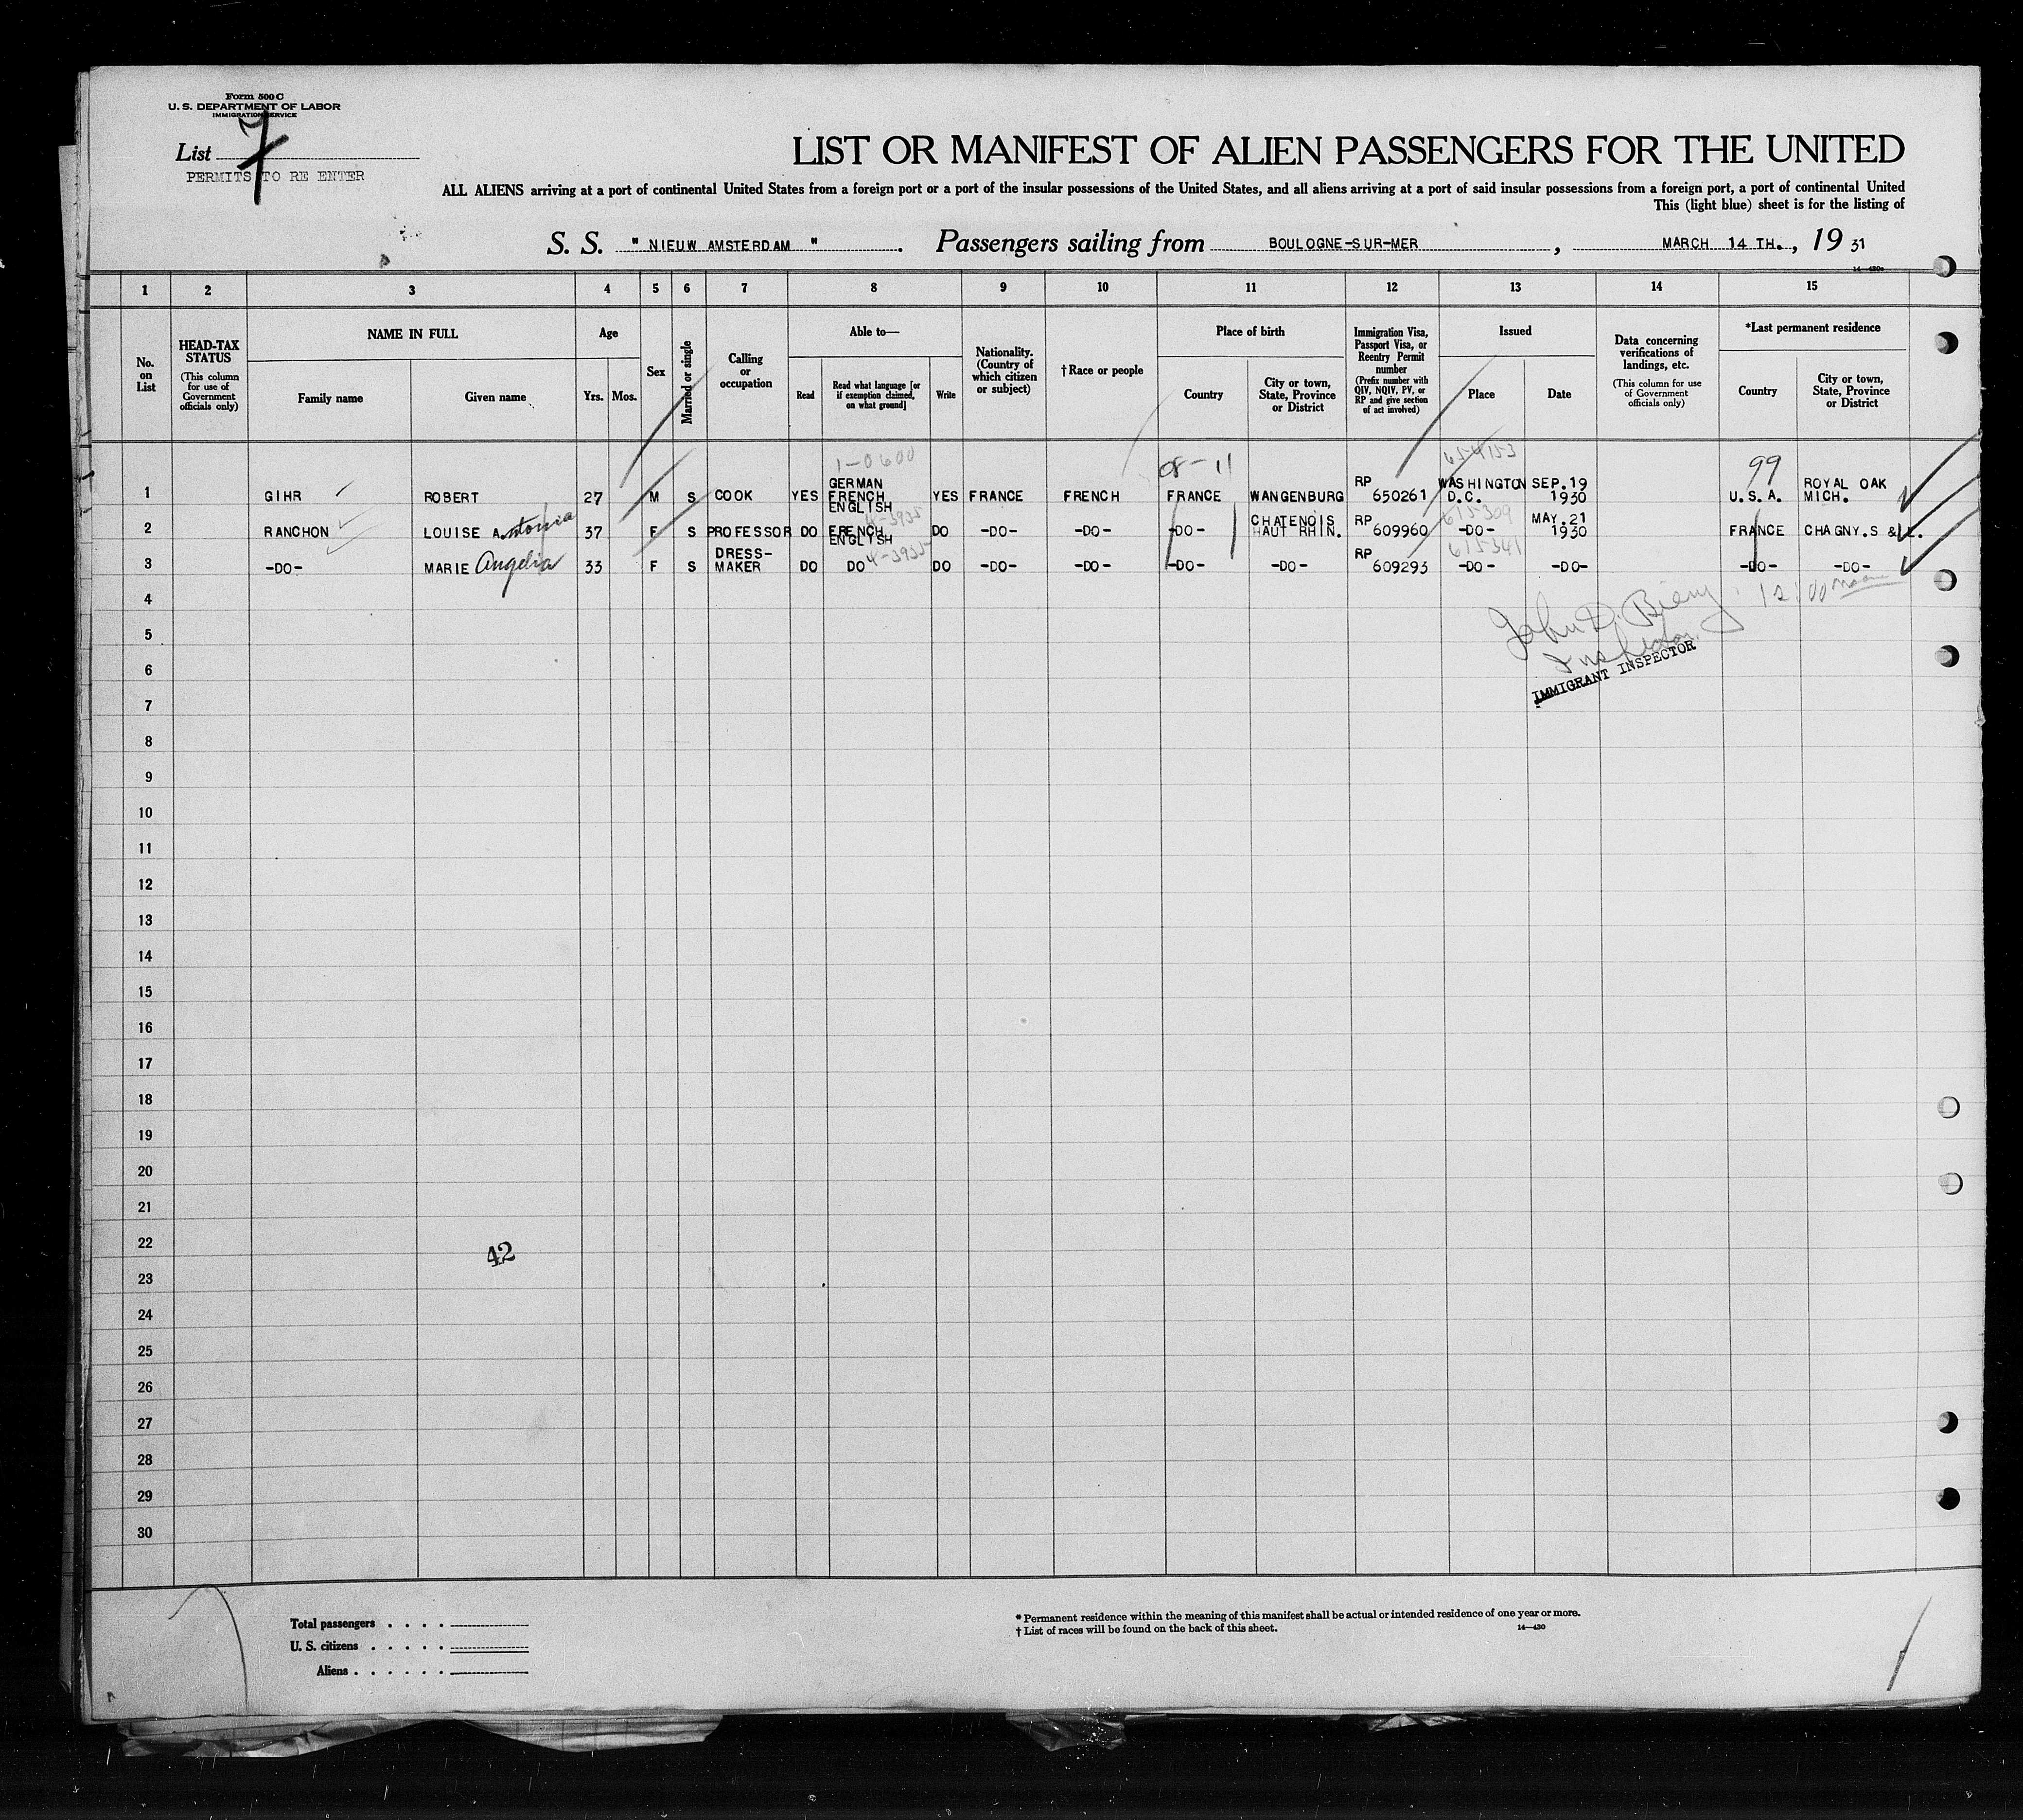 Form 500 C
U. S. DEPARTMENT OF LABOR
IMMIGRATION SERVICE
List 7
PERMITS TO RE ENTER
LIST OR MANIFEST OF ALIEN PASSENGERS FOR THE UNITED
ALL ALIENS arriving at a port of continental United States from a foreign port or a port of the insular possessions of the United States, and all aliens arriving at a port of said insular possessions from a foreign port, a port of continental United
This (light blue) sheet is for the listing of
S. S. " NIEUW AMSTERDAM ". Passengers sailing from BOULOGNE-SUR-MER, MARCH 14 TH., 19 31
1 2 3 4 5 6 7 8 9 10 11 12 13 14 15
No. on List
HEAD-TAX STATUS
(This column for use of Government officials only)
NAME IN FULL
Family name
Given name
Age
Yrs. Mos.
Sex
Married or single
Calling or occupation
Able to—
Read
Read what language [or if exemption claimed, on what ground]
Write
Nationality. (Country of which citizen or subject)
† Race or people
Place of birth
Country
City or town, State, Province or District
Immigration Visa, Passport Visa, or Reentry Permit number
(Prefix number with QIV, NQIV, PV, or RP and give section of act involved)
Issued
Place
Date
Data concerning verifications of landings, etc.
(This column for use of Government officials only)
*Last permanent residence
Country
City or town, State, Province or District
1-0600 08-11 99
1 GIHR ROBERT 27 M S COOK YES GERMAN FRENCH ENGLISH YES FRANCE FRENCH FRANCE WANGENBURG RP 650261 WASHINGTON D.C. SEP.19 1930 U.S.A. ROYAL OAK MICH.
4-3935 615309
2 RANCHON LOUISE Antonia 37 F S PROFESSOR DO FRENCH ENGLISH DO -DO- -DO- -DO- CHATENOIS HAUT RHIN. RP 609960 -DO- MAY.21 1930 FRANCE CHAGNY.S & L.
4-3935 615341
3 -DO- MARIE Angelia 33 F S DRESS-MAKER DO DO DO -DO- -DO- -DO- -DO- RP 609293 -DO- -DO- -DO- -DO-
4
John D. 12:00 noon
5
6
IMMIGRANT INSPECTOR
7
8
9
10
11
12
13
14
15
16
17
18
19
20
21
22
42
23
24
25
26
27
28
29
30
Total passengers
U. S. citizens
Aliens
* Permanent residence within the meaning of this manifest shall be actual or intended residence of one year or more.
† List of races will be found on the back of this sheet.
14—430